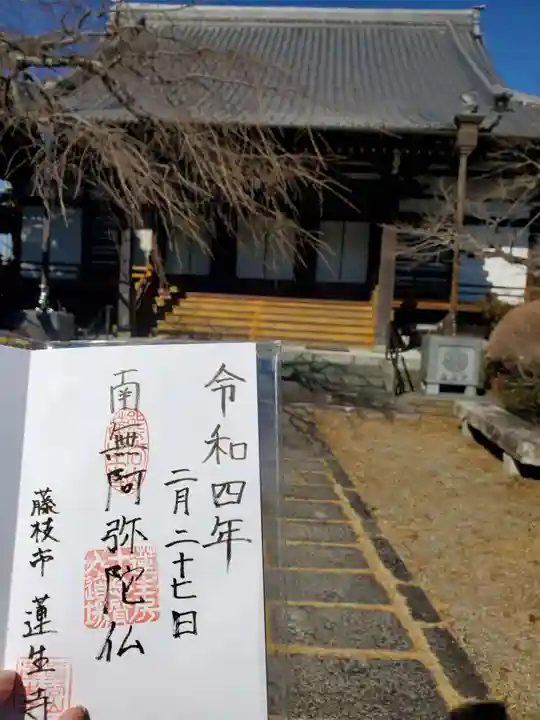 令和四年
二月二十七日
南無阿弥陀仏
藤枝市 蓮生寺